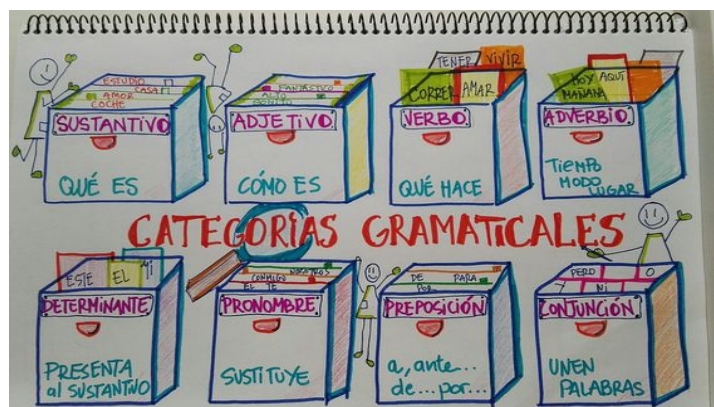 ESTUDIO
CASA
AMOR
COCHE
SUSTANTIVO
QUÉ ES
FANTÁSTICO
ALTO
BONITO
ADJETIVO
CÓMO ES
TENER VIVIR
CORRER AMAR
VERBO
QUÉ HACE
HOY AQUÍ
MAÑANA
ADVERBIO
TIEMPO
MODO
LUGAR
CATEGORÍAS GRAMATICALES
ESTE EL MI
DETERMINANTE
PRESENTA
al SUSTANTIVO
NOSOTROS
CONMIGO
EL TE
PRONOMBRE
SUSTITUYE
DE PARA
POR
PREPOSICIÓN
a, ante...
de... por...
PERO O
Y NI
CONJUNCIÓN
UNEN
PALABRAS